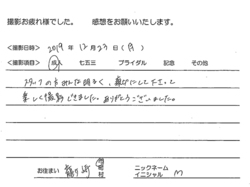 撮影お疲れ様でした。 感想をお願いいたします。
<撮影日時> 2019年 12月 23日 (月)
<撮影項目> 成人 七五三 ブライダル 記念 その他
スタッフの方みんな明るく、親切にして下さって
楽しく撮影できました。ありがとうございました。
お住まい 市 ニックネーム
イニシャル M